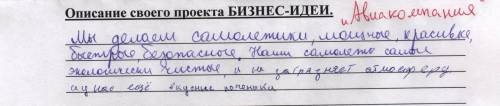 Описание своего проекта БИЗНЕС-ИДЕИ. "Авиакомпания"
Мы делаем самолетики, мощные, красивые,
быстрые, безопасные. Наши самолеты самые
экологически чистые, и не загрязняет атмосферу.
а у нас ещё вкусные печеньки